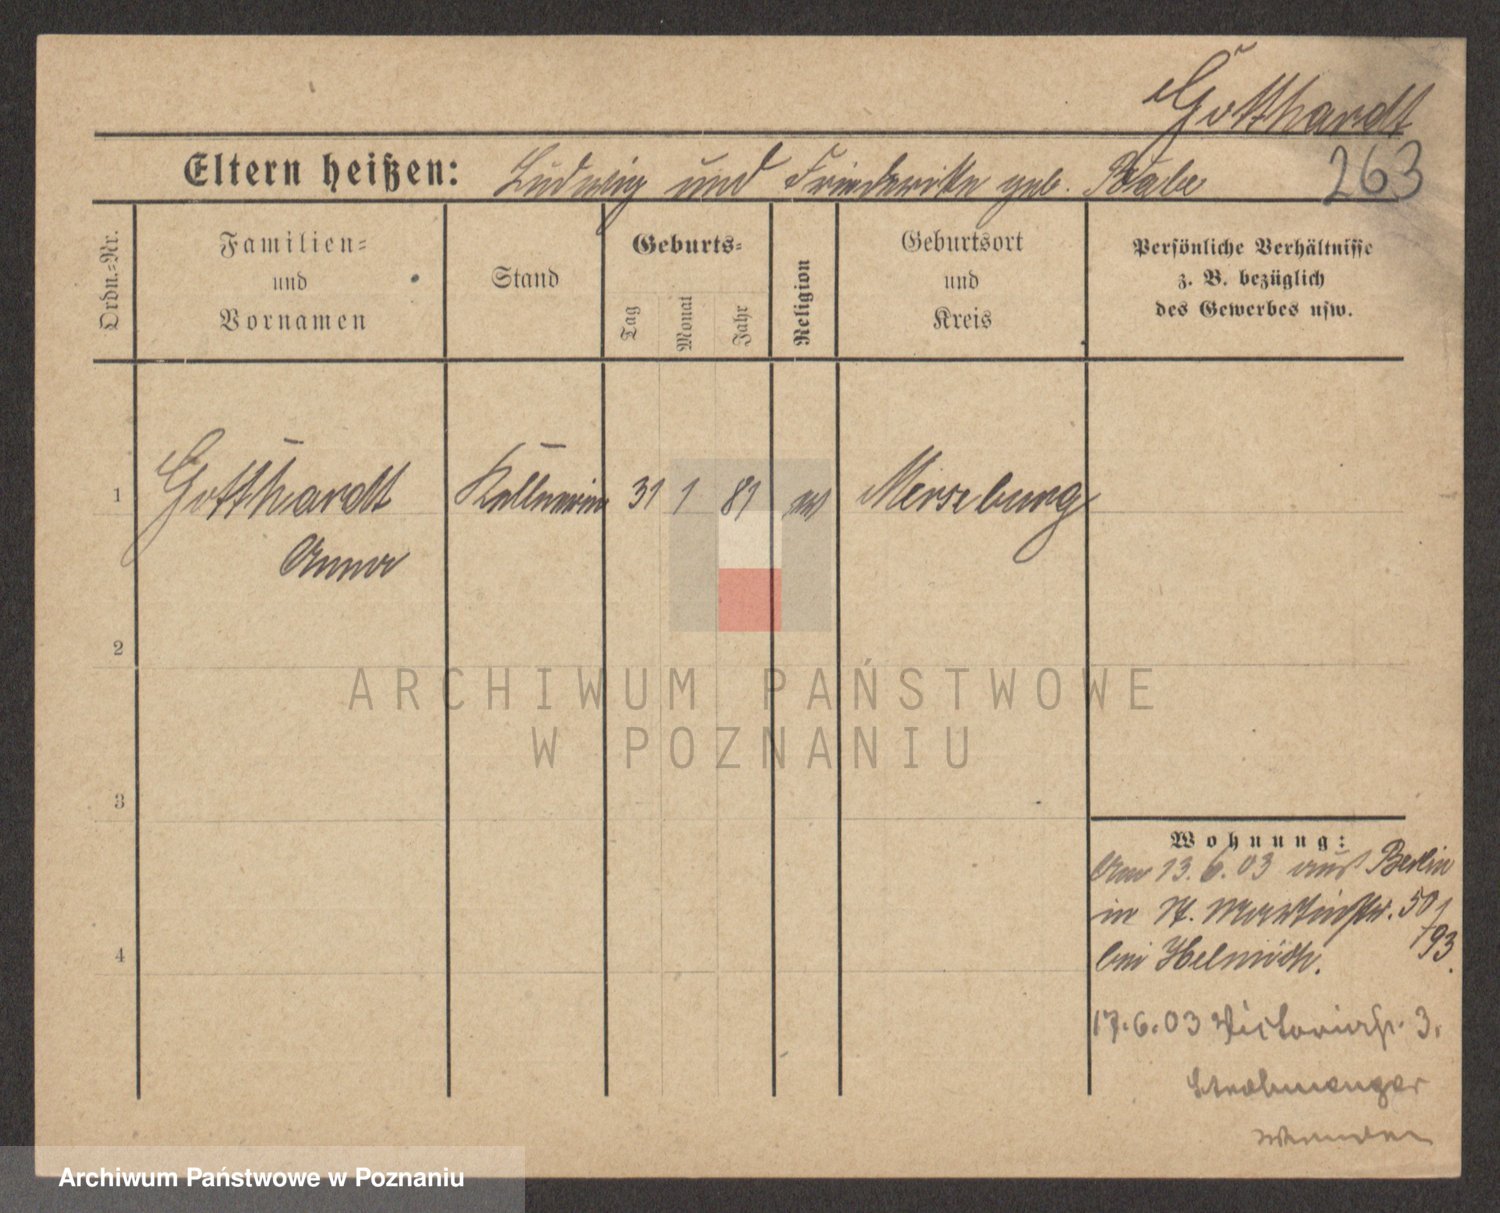 Gotthardt
263
Eltern heißen: Ludwig und Friederike geb. Raabe
Ordn.=Nr.
Familien=
und
Vornamen
Stand
Geburts=
Tag
Monat
Jahr
Religion
Geburtsort
und
Kreis
Persönliche Verhältnisse
z. B. bezüglich
des Gewerbes usw.
1
Gotthardt
Anna
Kellnerin
31
1
81
ev
Merseburg
2
3
4
Wohnung:
Am 13.6.03 aus Berlin
in St. Martinstr. 50
/93.
bei Helmich.
17.6.03 Victoriastr. 3.
ARCHIWUM PAŃSTWOWE
W POZNANIU
Archiwum Państwowe w Poznaniu